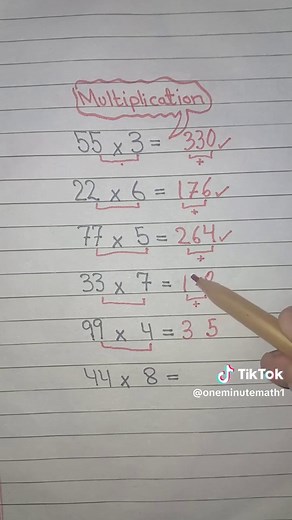 Multiplication
55 x 3 = 330 ✓
+
22 x 6 = 176 ✓
+
77 x 5 = 264 ✓
+
33 x 7 =
+
99 x 4 = 3 5
44 x 8 =
TikTok
@oneminutemath1